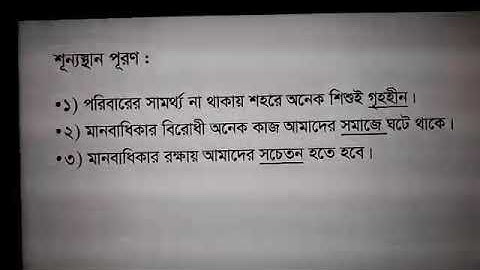 শূন্যস্থান পূরণ :
•১) পরিবারের সামর্থ্য না থাকায় শহরে অনেক শিশুই গৃহহীন।
•২) মানবাধিকার বিরোধী অনেক কাজ আমাদের সমাজে ঘটে থাকে।
•৩) মানবাধিকার রক্ষায় আমাদের সচেতন হতে হবে।